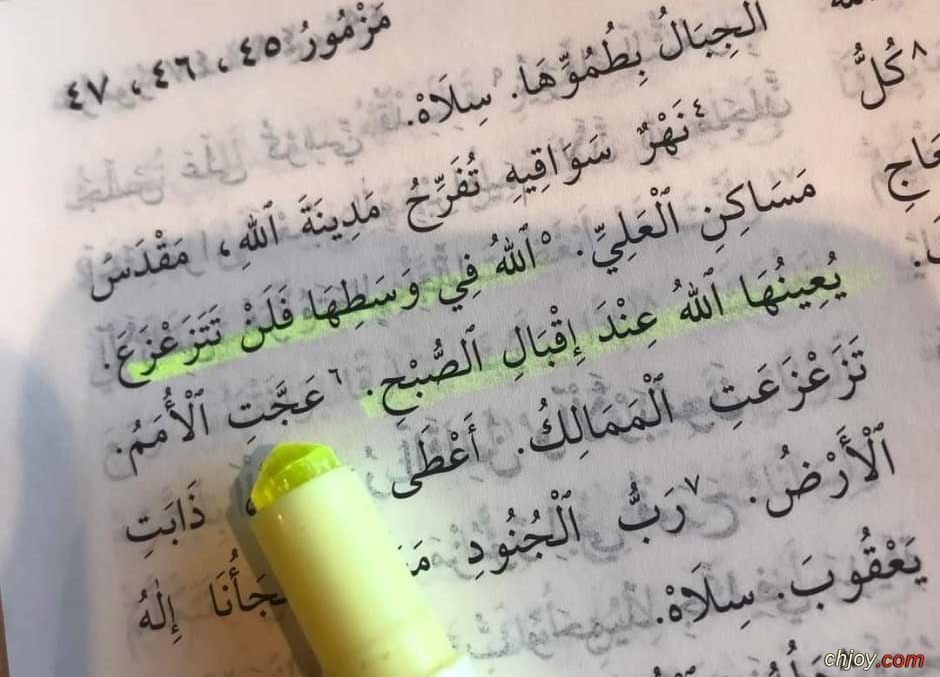 مَزْمُورُ ٤٥ ، ٤٦ ، ٤٧
الْجِبَالُ بِطُمُوِّهَا. سِلَاهْ.
٤ نَهْرٌ سَوَاقِيهِ تُفَرِّحُ مَدِينَةَ ٱللهِ، مَقْدَسَ
مَسَاكِنِ ٱلْعَلِيِّ. ٥ ٱللهُ فِي وَسَطِهَا فَلَنْ تَتَزَعْزَعَ.
يُعِينُهَا ٱللهُ عِنْدَ إِقْبَالِ ٱلصُّبْحِ. ٦ عَجَّتِ ٱلْأُمَمُ.
تَزَعْزَعَتِ ٱلْمَمَالِكُ. أَعْطَى ذَابَتِ
ٱلْأَرْضُ. ٧ رَبُّ ٱلْجُنُودِ إِلٰهُ
يَعْقُوبَ. سِلَاهْ.
٨ كُلُّ
chjoy.com